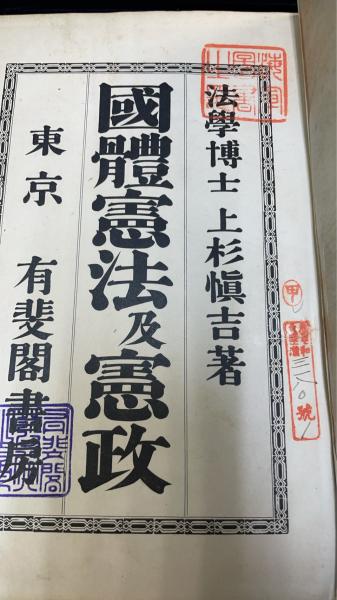 法學博士 上杉愼吉著
國體憲法及憲政
東京 有斐閣書房
甲
三八〇號